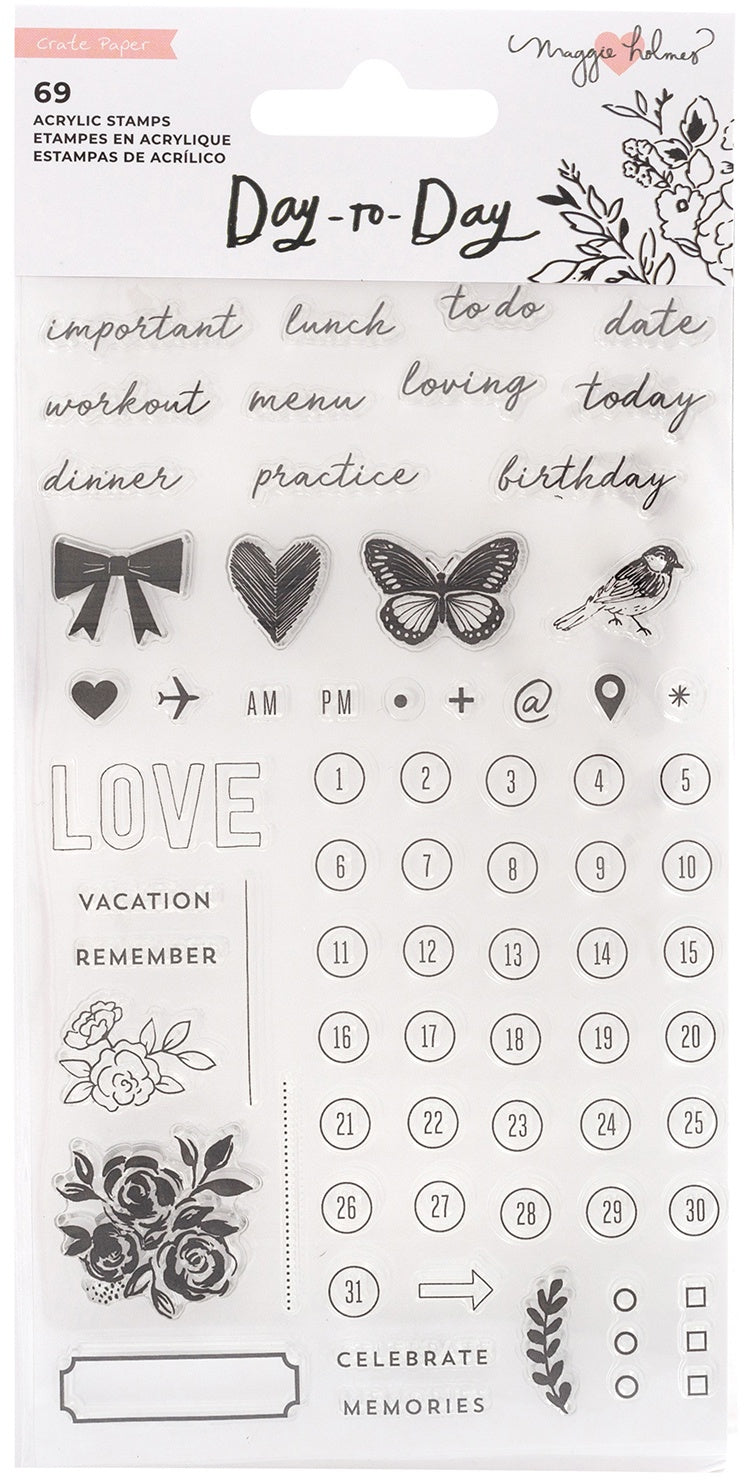 Crate Paper
maggie holmes
69
ACRYLIC STAMPS
ETAMPES EN ACRYLIQUE
ESTAMPAS DE ACRÍLICO
Day-to-Day
important lunch to do date
workout menu loving today
dinner practice birthday
AM PM • + @ *
LOVE
1 2 3 4 5
6 7 8 9 10
VACATION
REMEMBER
11 12 13 14 15
16 17 18 19 20
21 22 23 24 25
26 27 28 29 30
31
CELEBRATE
MEMORIES